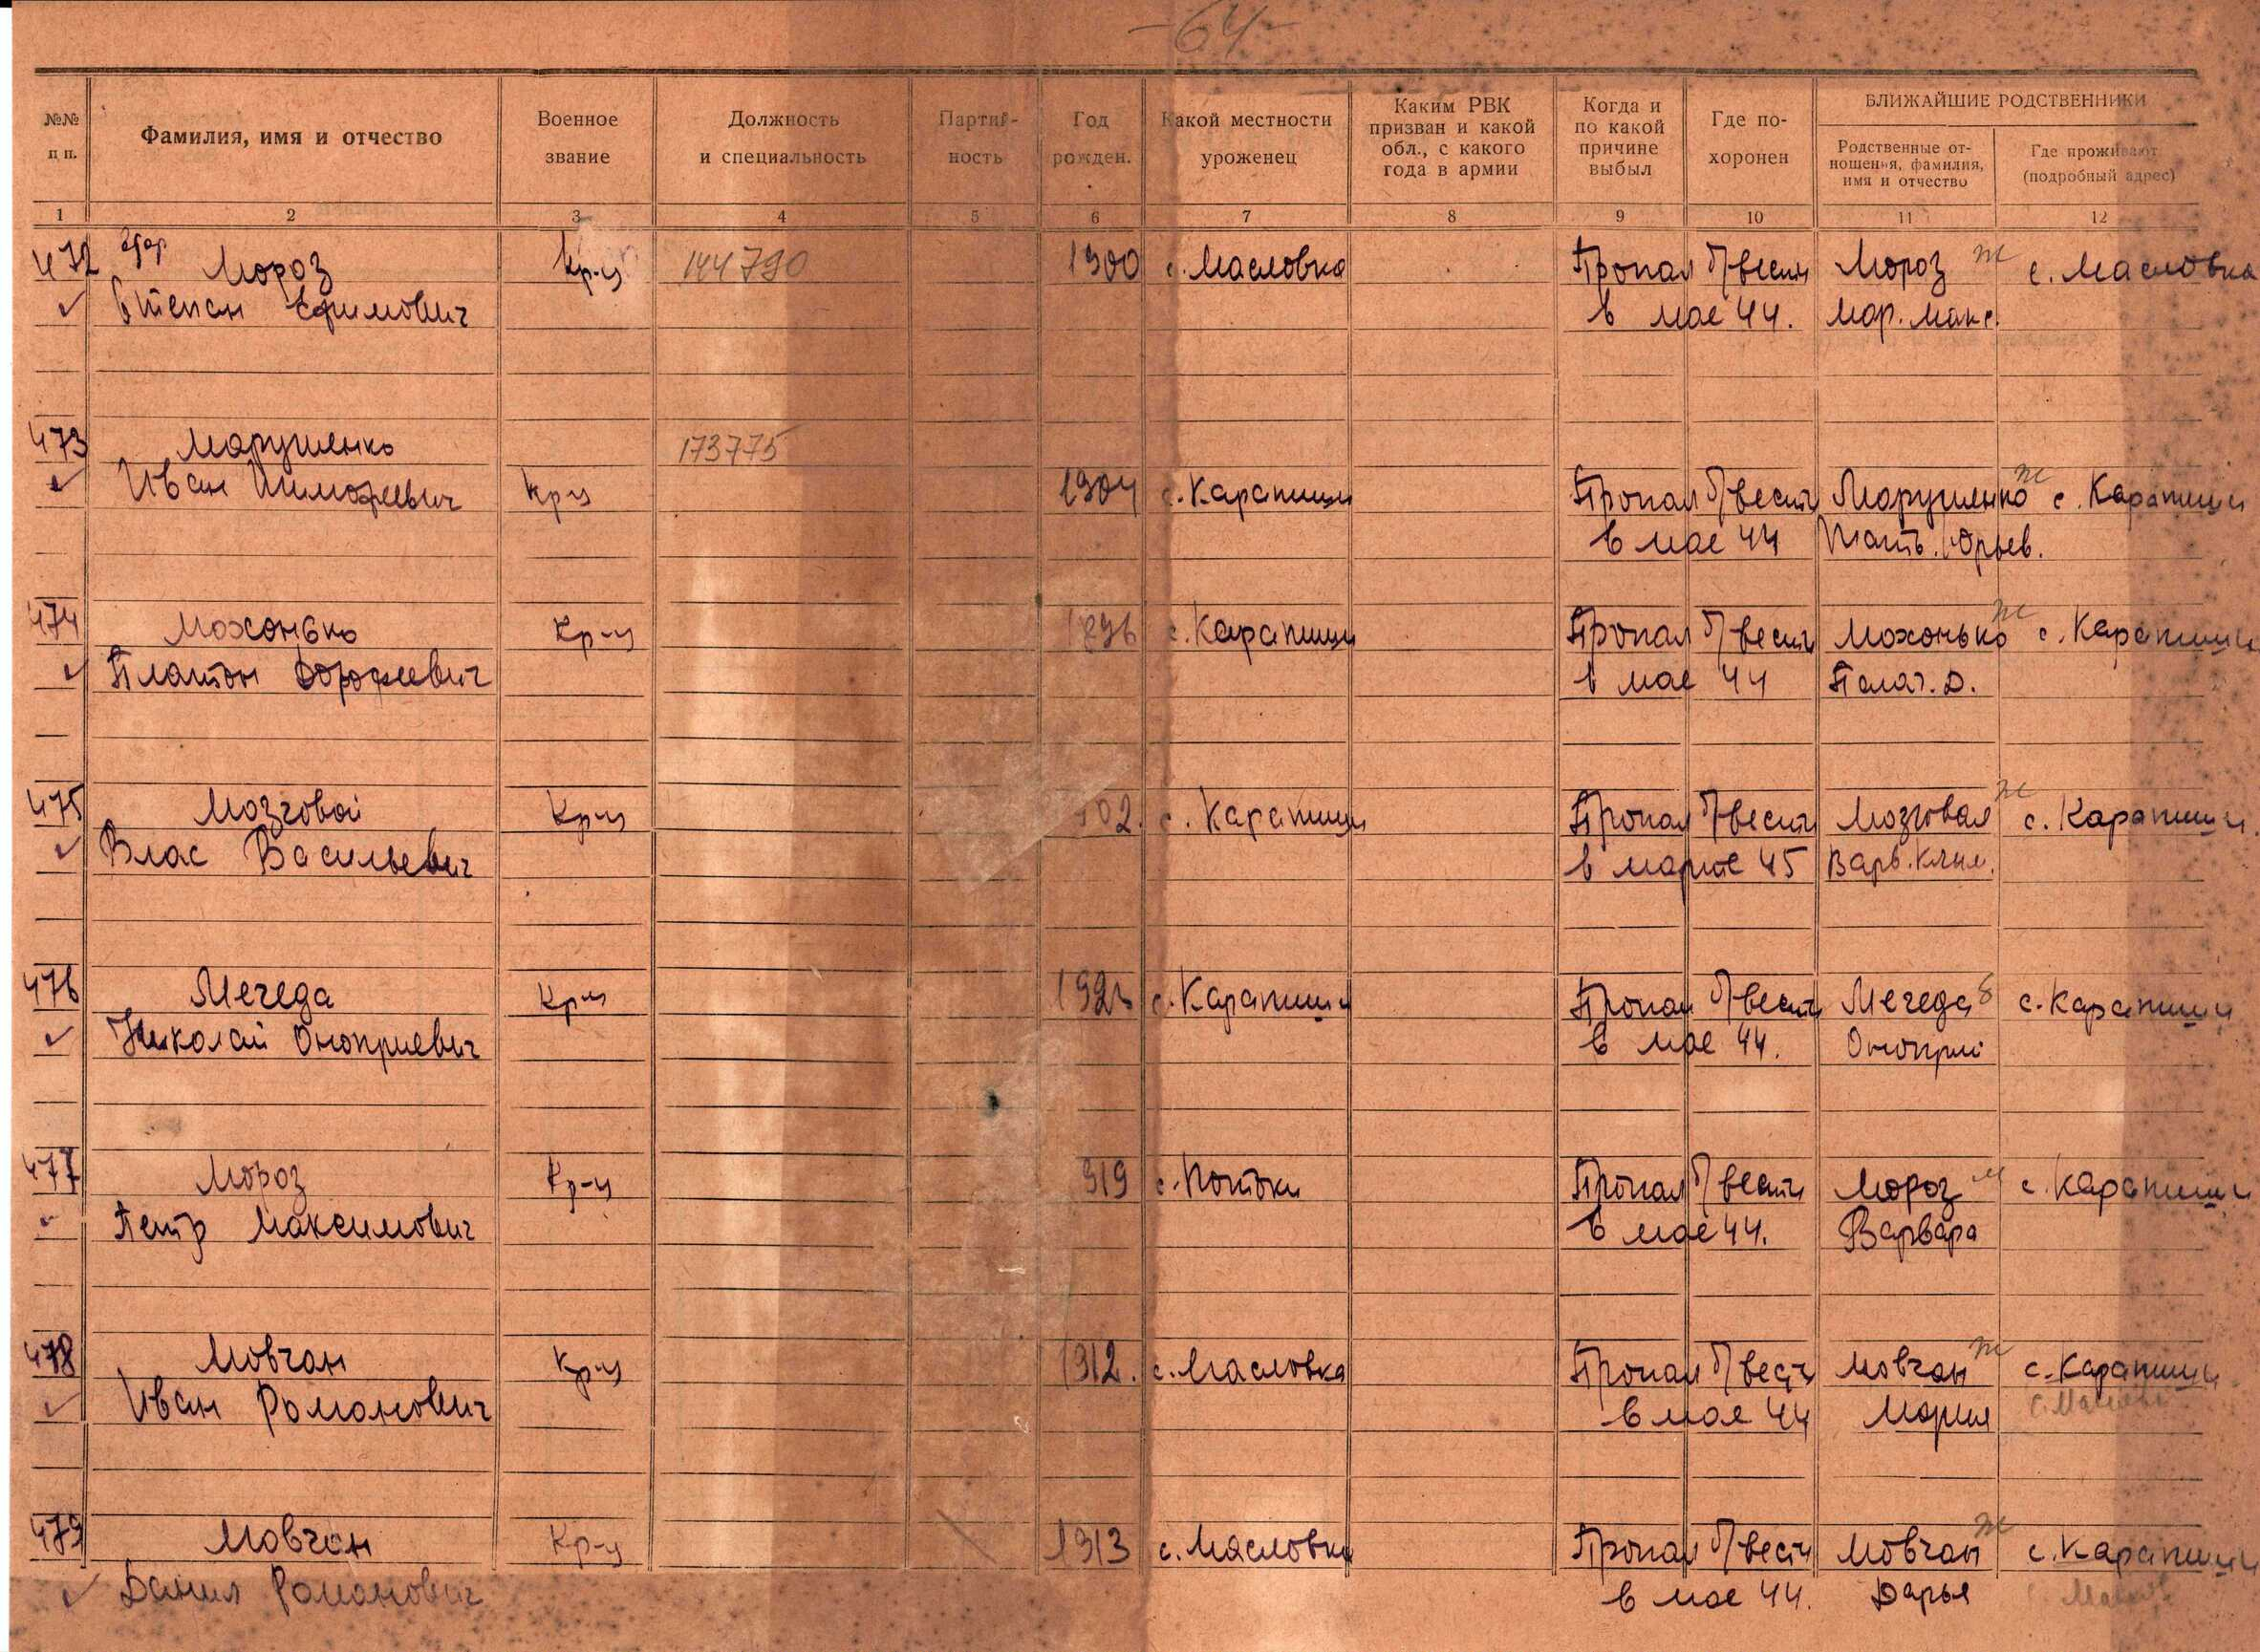 -64-
№№ п п.
Фамилия, имя и отчество
Военное звание
Должность и специальность
Партий-ность
Год рожден.
Какой местности уроженец
Каким РВК призван и какой обл., с какого года в армии
Когда и по какой причине выбыл
Где по-хоронен
БЛИЖАЙШИЕ РОДСТВЕННИКИ
Родственные от-ношения, фамилия, имя и отчество
Где проживают (подробный адрес)
1 2 3 4 5 6 7 8 9 10 11 12
472 Мороз кр-ц 144790 1900 с. Масловка Пропал б/вести Мороз ж с. Масловка
Степан Ефимович в мае 44. Мар. Макс.
473 Марушенко 173775
Иван Тимофеевич кр-ц 1904 с. Карапиши Пропал б/вести Марушенко ж с. Карапиши
в мае 44 Юрьев.
474 Мохонько кр-ц 1896 с. Карапиши Пропал б/вести Мохонько ж с. Карапиши
Платон Дорофеевич в мае 44 Пелаг. Д.
475 Мозговой кр-ц 02. с. Карапиши Пропал б/вести Мозговая ж с. Карапиши.
Влас Васильевич в марте 45 Варв. Клим.
476 Мегеда кр-ц с. Карапиши Пропал б/вести Мегеда б с. Карапиши
Николай Оноприевич в мае 44. Оноприй
477 Мороз кр-ц 919 с. Потоки Пропал б/вести Мороз м с. Карапиши
Петр Максимович в мае 44. Варвара
478 Мовчан кр-ц 1912. с. Масловка Пропал б/вести Мовчан ж с. Карапиши
Иван Романович в мае 44 Мария
479 Мовчан кр-ц 1913 с. Масловка Пропал б/вести Мовчан ж с. Карапиши
Данил Романович в мае 44. Дарья